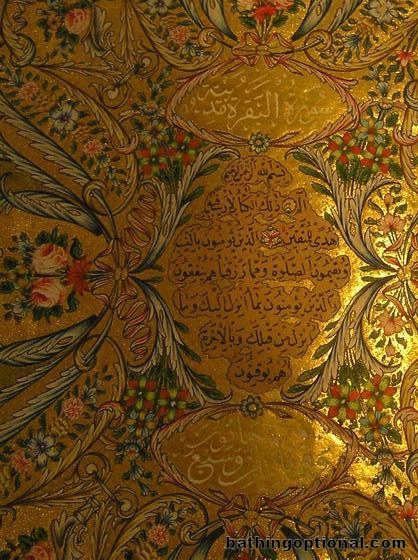 سورة البقرة مدنية
بسم الله الرحمن الرحيم
الم ذلك الكتاب لا ريب فيه
هدى للمتقين الذين يؤمنون بالغيب
ويقيمون الصلوة ومما رزقناهم ينفقون
والذين يؤمنون بما انزل اليك وما
انزل من قبلك وبالاخرة
هم يوقنون
bathingoptional.com